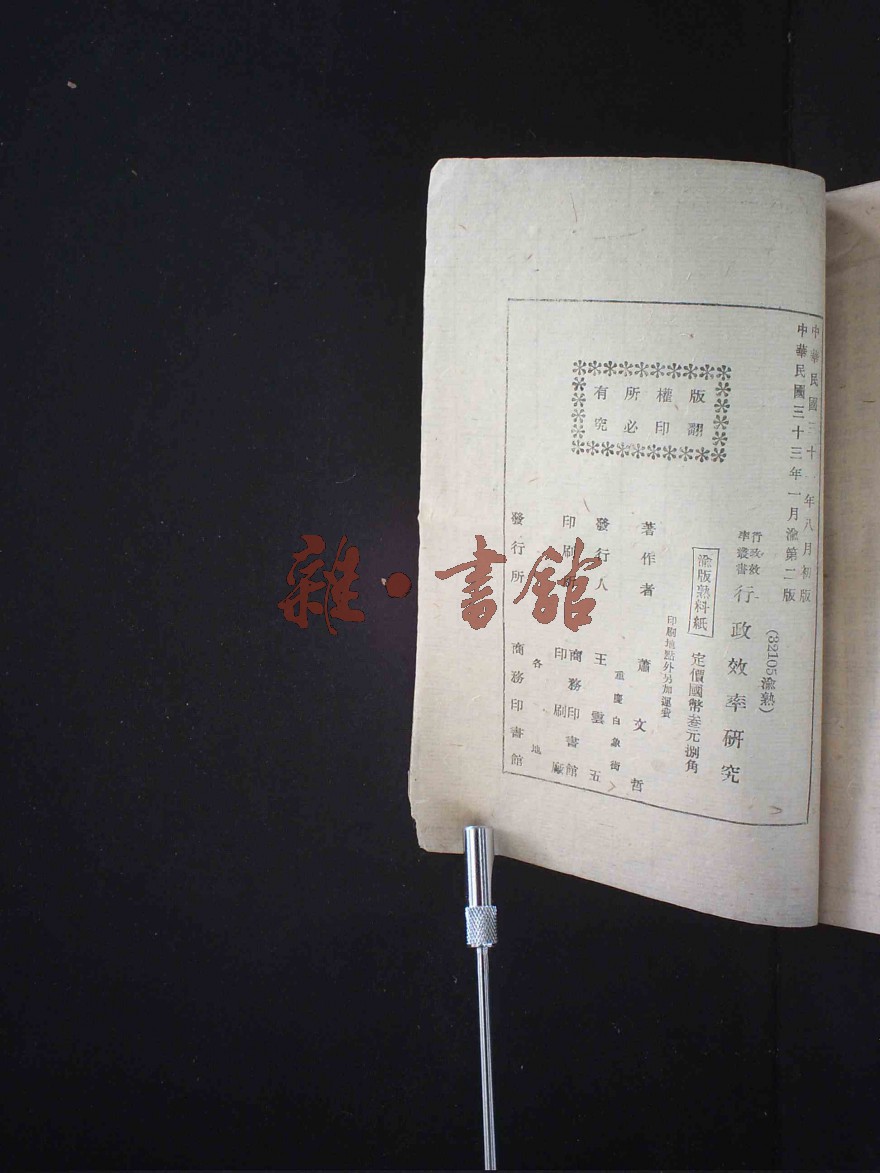 中華民國三十 年八月初版
中華民國三十三年一月渝第二版
(32105渝熟)
行政效
率叢書
行政效率研究
渝版熟料紙
定價國幣叁元捌角
印刷地點外另加運費
著作者 蕭文哲
重慶白象街
發行人 王雲五
印刷所 商務印書館
印刷廠
各地
發行所 商務印書館
版權所有
翻印必究
雜·書館